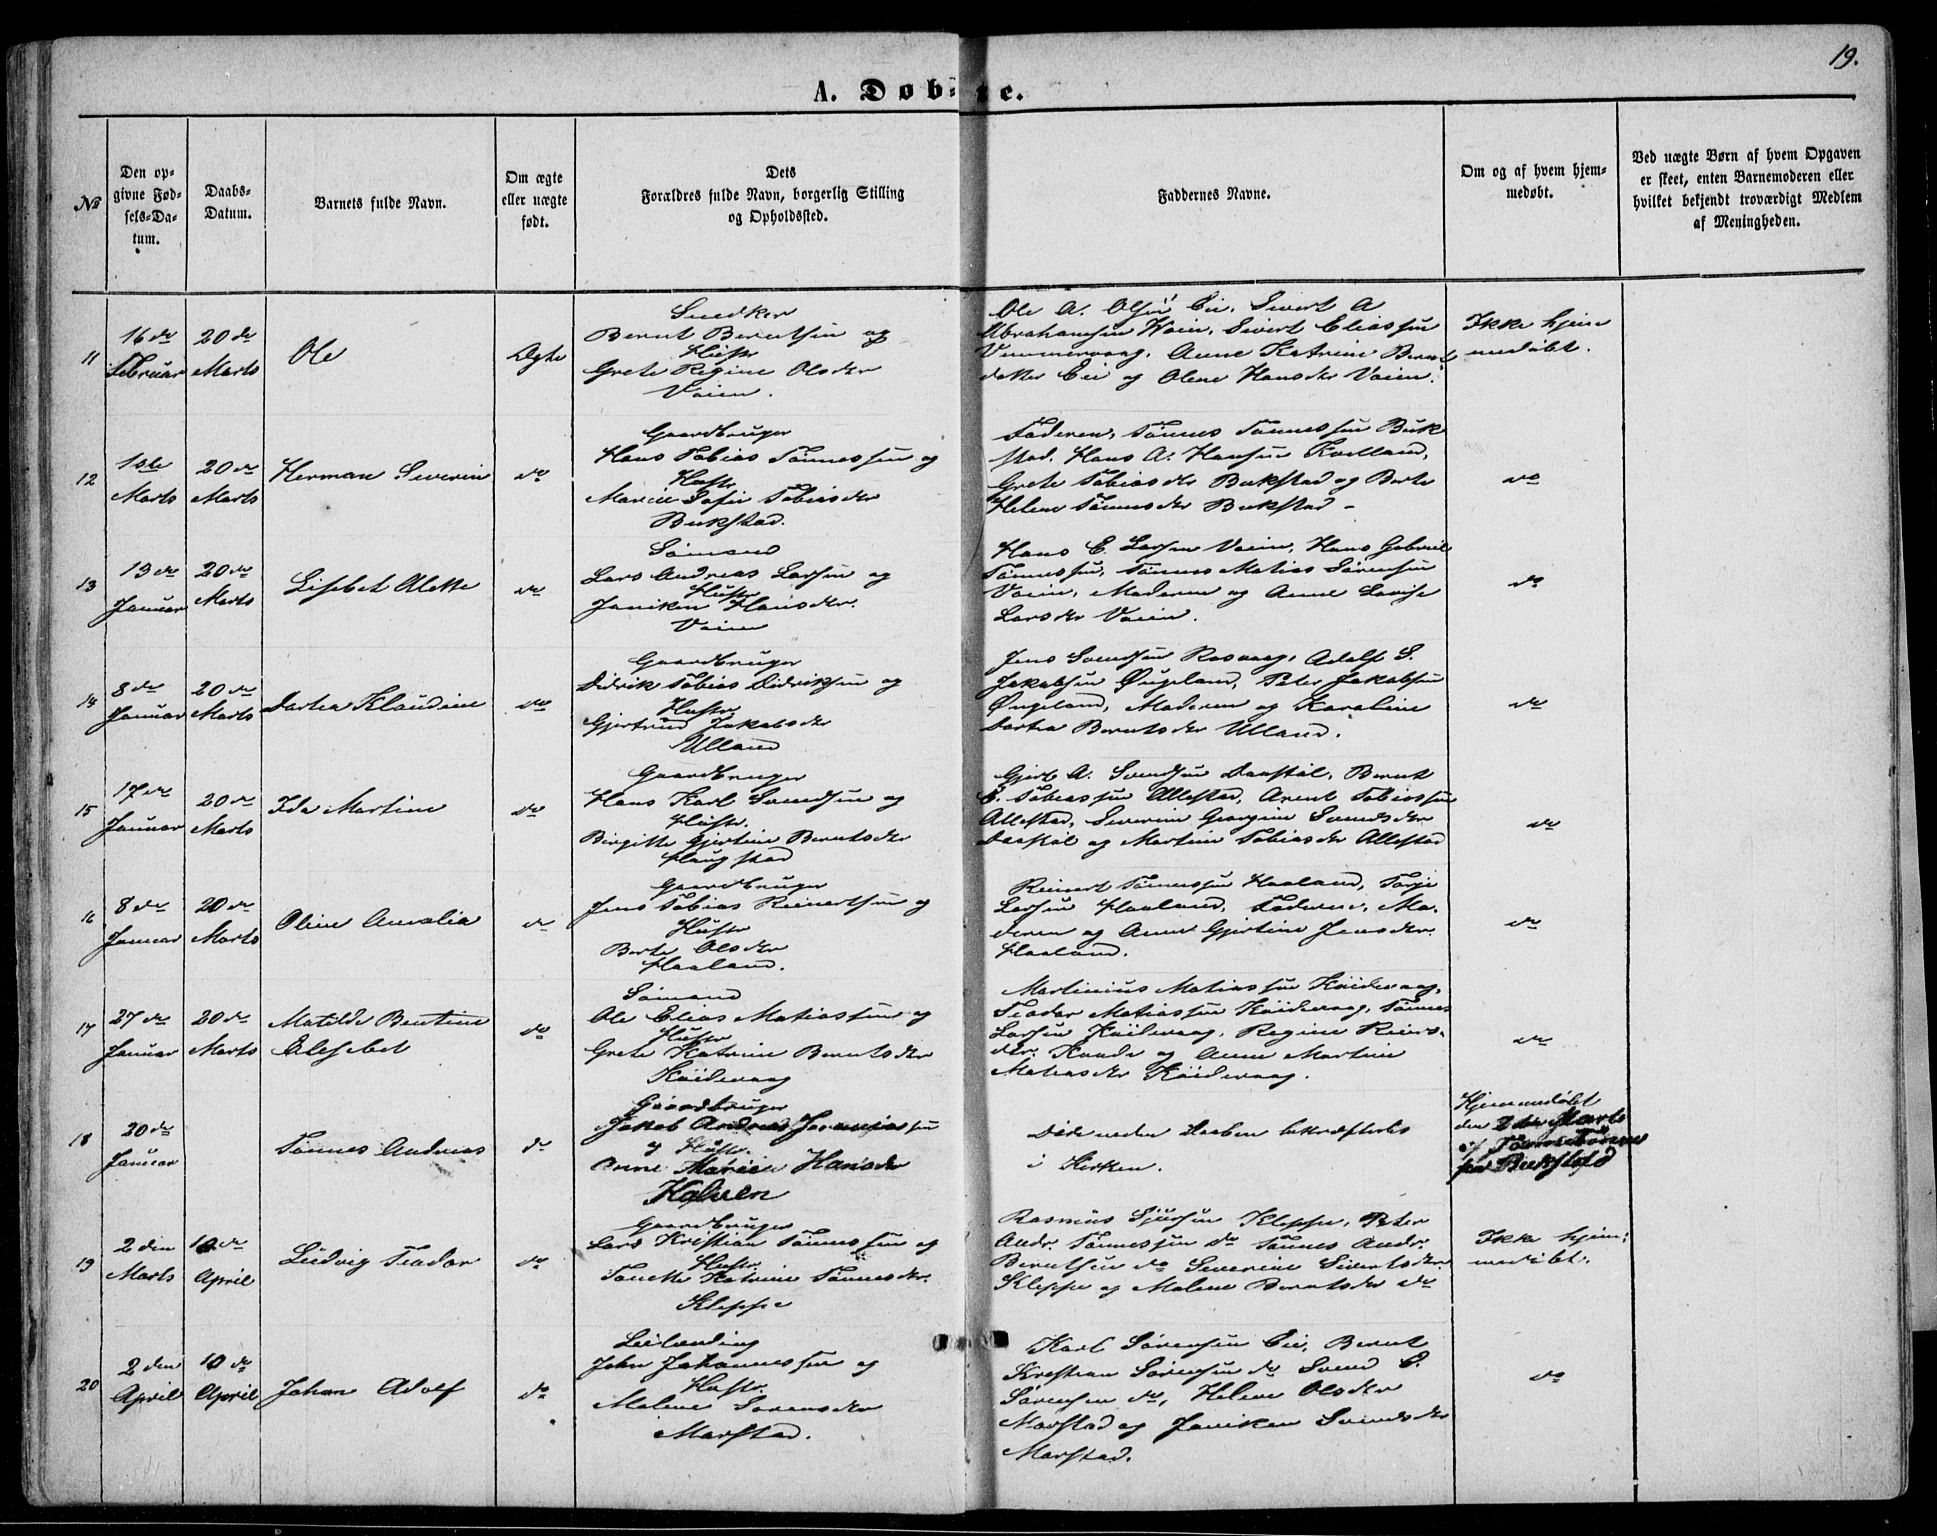 19.
A. Døb- te.
№
Den op-
givne Fød-
sels-Da-
tum.
Daabs-
Datum.
Barnets fulde Navn.
Om ægte
eller uægte
født.
Dets
Forældres fulde Navn, borgerlig Stilling
og Opholdssted.
Faddernes Navne.
Om og af hvem hjem-
medøbt.
Ved uægte Børn af hvem Opgaven
er skeet, enten Barnemoderen eller
hvilket bekjendt troværdigt Medlem
af Meningheden.
11
16de
Februar
20de
Marts
Ole
Ægte
Snedker
Bernt Berntsen og
Hustr
Grete Regine Olsdtr
Vaien.
Ole A. Olsen Eie, Sivert A
Abrahamsen Waien, Sivert Eliassen
Anne Katrine Bernt
datter Eie og Olene Hansdtr Vaien.
Ikke hjem
medøbt.
12
1ste
Marts
20de
Marts
Herman Severin
do
Gaardbruger
Hans Tobias Tønnessen og
Hustr
Maren Sofie Tobiasdtr
Bukstad.
Faderen, Tønnes Tønnessen Buk
stad, Hans A. Hansen
Grete Tobiasdtr Bukstad og Berte
Helene Tønnesdtr Bukstad -
do
13
13de
Januar
20de
Marts
Lisebet Alette
do
Sømand
Lars Andreas Larsen og
Hustr
Janiken Hansdtr.
Vaien
Hans E. Larsen Vaien, Hans Gabriel
Tønnessen, Tønnes Matias Sørensen
Vaien, Moderen og Anne Lovise
Larsdtr Vaien.
do
14
8de
Januar
20de
Marts
Dortea Klaudine
do
Gaardbruger
Didrik Tobias Didriksen og
Hustr
Gjertrud Jakobsdtr
Ulland
Jens Svendsen Rosvaag, Adolf S.
Jakobsen Øugeland, Peter Jakobsen
Øugeland, Moderen og Karoline
Dortea Berntsdtr Ulland.
do
15
17de
Januar
20de
Marts
Ida Martine
do
Gaardbruger
Hans Karl Svendsen og
Hustr.
Birgitte Gjertine Berntsdtr
Haugstad
Gjert A. Svendsen Daastøl, Bernt
E. Tobiassen Allestad, Arent Tobiassen
Allestad, Severine Georgine Svendsdtr
Daastøl og Martine Tobiasdtr Allestad
do
16
8de
Januar
20de
Marts
Oline Amalia
do
Gaardbruger
Jens Tobias Reinertsen og
Hustr
Berte Olsdtr
Haaland.
Reinert Tønnessen Haaland, Torje
Larsen Haaland, Faderen, Mo-
deren og Anne Gjertine Jensdtr.
Haaland.
do
17
27de
Januar
20de
Marts
Matilde Bentine
Elesebet
do
Sømand
Ole Elias Matiassen og
Hustr
Grete Katrine Berntsdtr
Køidevaag
Martinius Matiassen Køidevaag,
Teodor Matiassen Køidevaag, Tønnes
Larsen Køidevaag, Regine Reiers-
dtr. Kaade og Anne Martine
Matiasdtr Køidevaag.
do
18
20de
Januar
Tønnes Andreas
do
Gaardbruger
Jakob Andreas Jeremiassen
og Hustr.
Anne Marie Hansdtr
Halven
Døde uden Daaben bekræftedes
i Kirken.
Hjemmedøbt
den 2den Marts
af Tønnes Tønnes
sen Bukstad
19
2den
Marts
10de
April
Ludvig Teodor
do
Gaardbruger
Lars Kristian Tønnessen og
Hustr.
Tonette Katrine Tønnesdtr.
Kleppe
Rasmus Sjursen Kleppe, Peter
Andr. Tønnessen do Tønnes Andr.
Berntsen do Severine Sivertsdtr.
Kleppe og Malene Berntsdtr do
Ikke hjem-
medøbt.
20
2den
April
10de
April
Johan Adolf
do
Leilænding
John Johannessen og
Hustr.
Malene Sørensdtr
Marstad.
Karl Sørensen Eie, Bernt
Kristian Sørensen do Svend O.
Sørensen do, Helene Olsdtr
Marstad og Janiken Svendsdtr
Marstad.
do